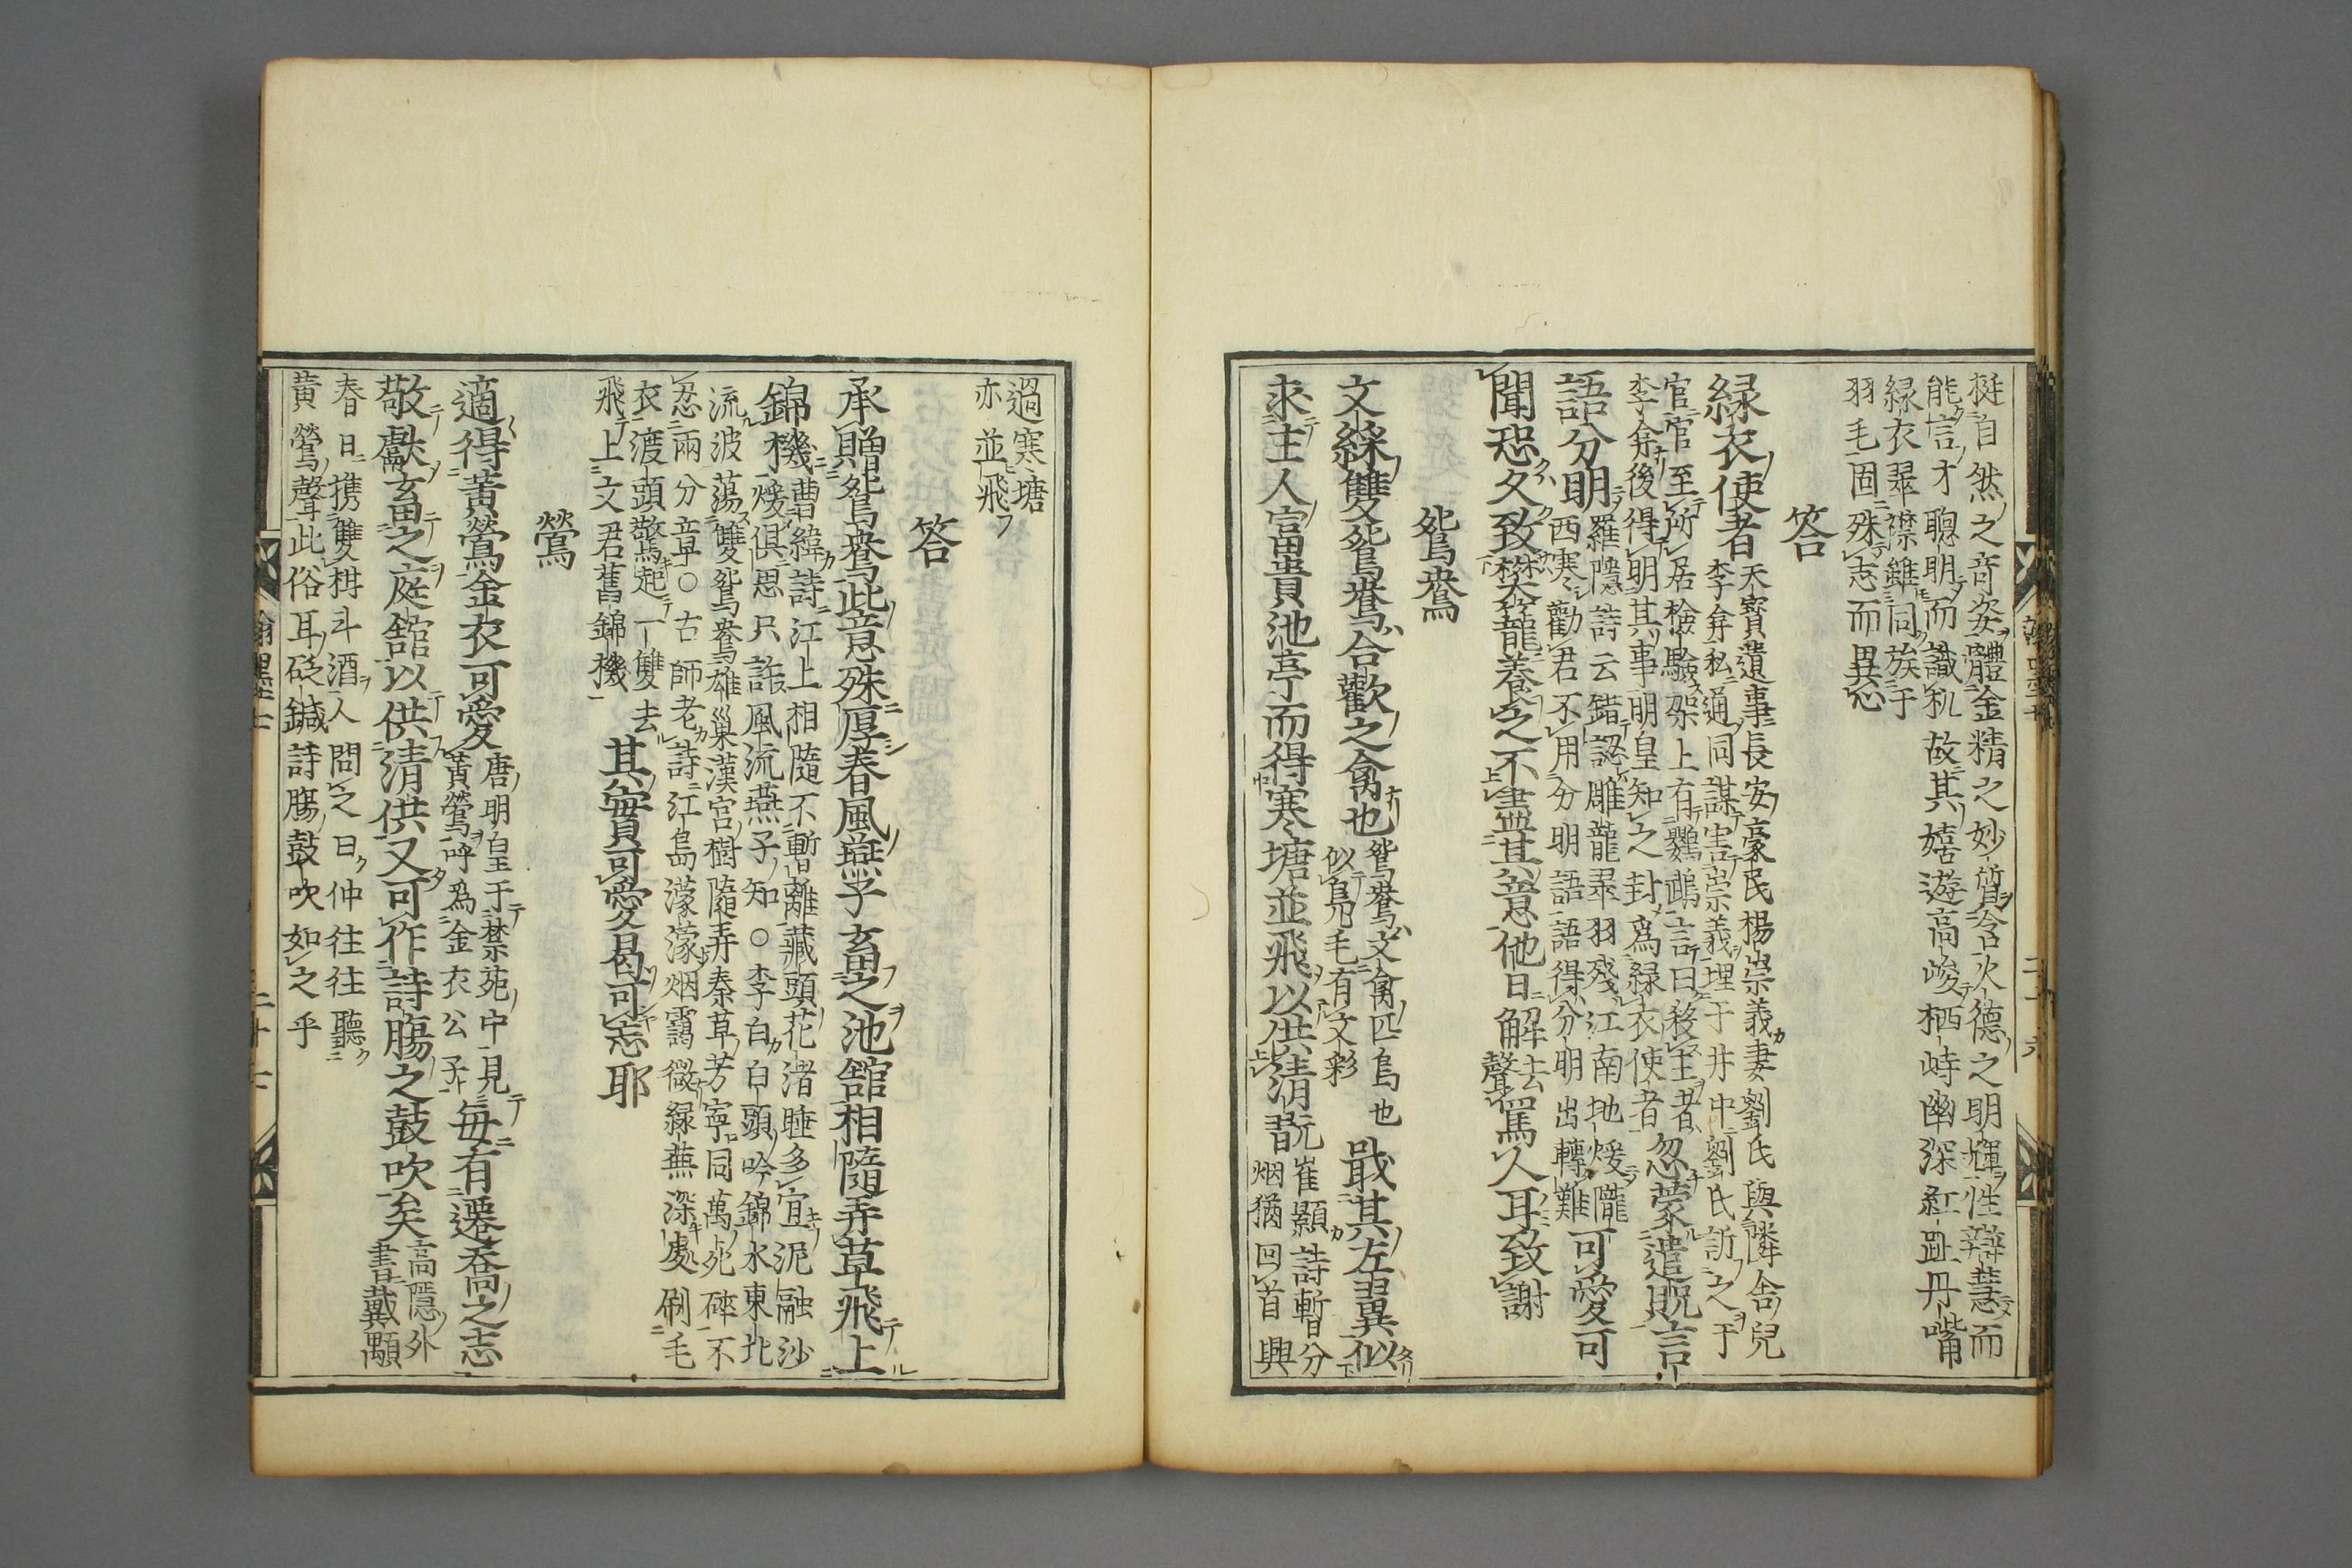 挺自然之奇姿體金精之妙質含火德之明輝性辯慧而
能言才聰明而識机故其嬉遊高峻栖峙幽深紅趾丹嘴
緑衣翠襟雖同族于
羽毛固殊志而異心
答
緑衣使者天寶遺事長安豪民楊崇義妻劉氏與隣舎兒
李弁私通同謀害崇義埋于井中劉氏訴之于
官官至所居檢驗架上有鸚鵡言曰殺主者
李弁後得明其事明皇知之封為緑衣使者
忽蒙遣貺言
語分明羅隱詩云錯認雕籠翠羽殘江南地煖隴
西寒勸君不用分明語語得分明出轉難
可愛可
聞恐久致樊籠養之不盡其意他日解去
聲罵人耳致謝
鴛鴦
文綵雙鴛鴦合歡之禽也鴛鴦文禽匹鳥也
似鳧毛有文彩
戢其左翼似
求主人富貴池亭而得寒塘並飛以供清翫崔顥詩暫分
烟猶回首興
過寒塘
亦並飛
答
承贈鴛鴦此意殊厚春風燕子畜之池舘相隨弄草飛上
錦機曹緯詩江上相隨不暫離藏頭花渚睡多宜泥融沙
煖倶思只詫風流燕子知○李白白頭吟錦水東北
流波蕩雙鴛鴦雄巢漢宮樹隨弄秦草芳寧同萬死碎不
忍兩分章○古師老詩江島濛濛烟靄微緑蕪深處刷毛
衣渡頭驚起一雙去
飛上文君舊錦機
其實可愛曷可忘耶
鶯
適得黃鶯金衣可愛唐明皇于禁苑中見
黃鶯呼為金衣公子
毎有遷喬之志
敬獻畜之庭舘以供清供又可作詩膓之鼓吹矣高隱外
書戴顒
春日携雙柑斗酒人問之曰仲往往聽
黃鶯聲此俗耳砭鍼詩膓鼓吹如之乎